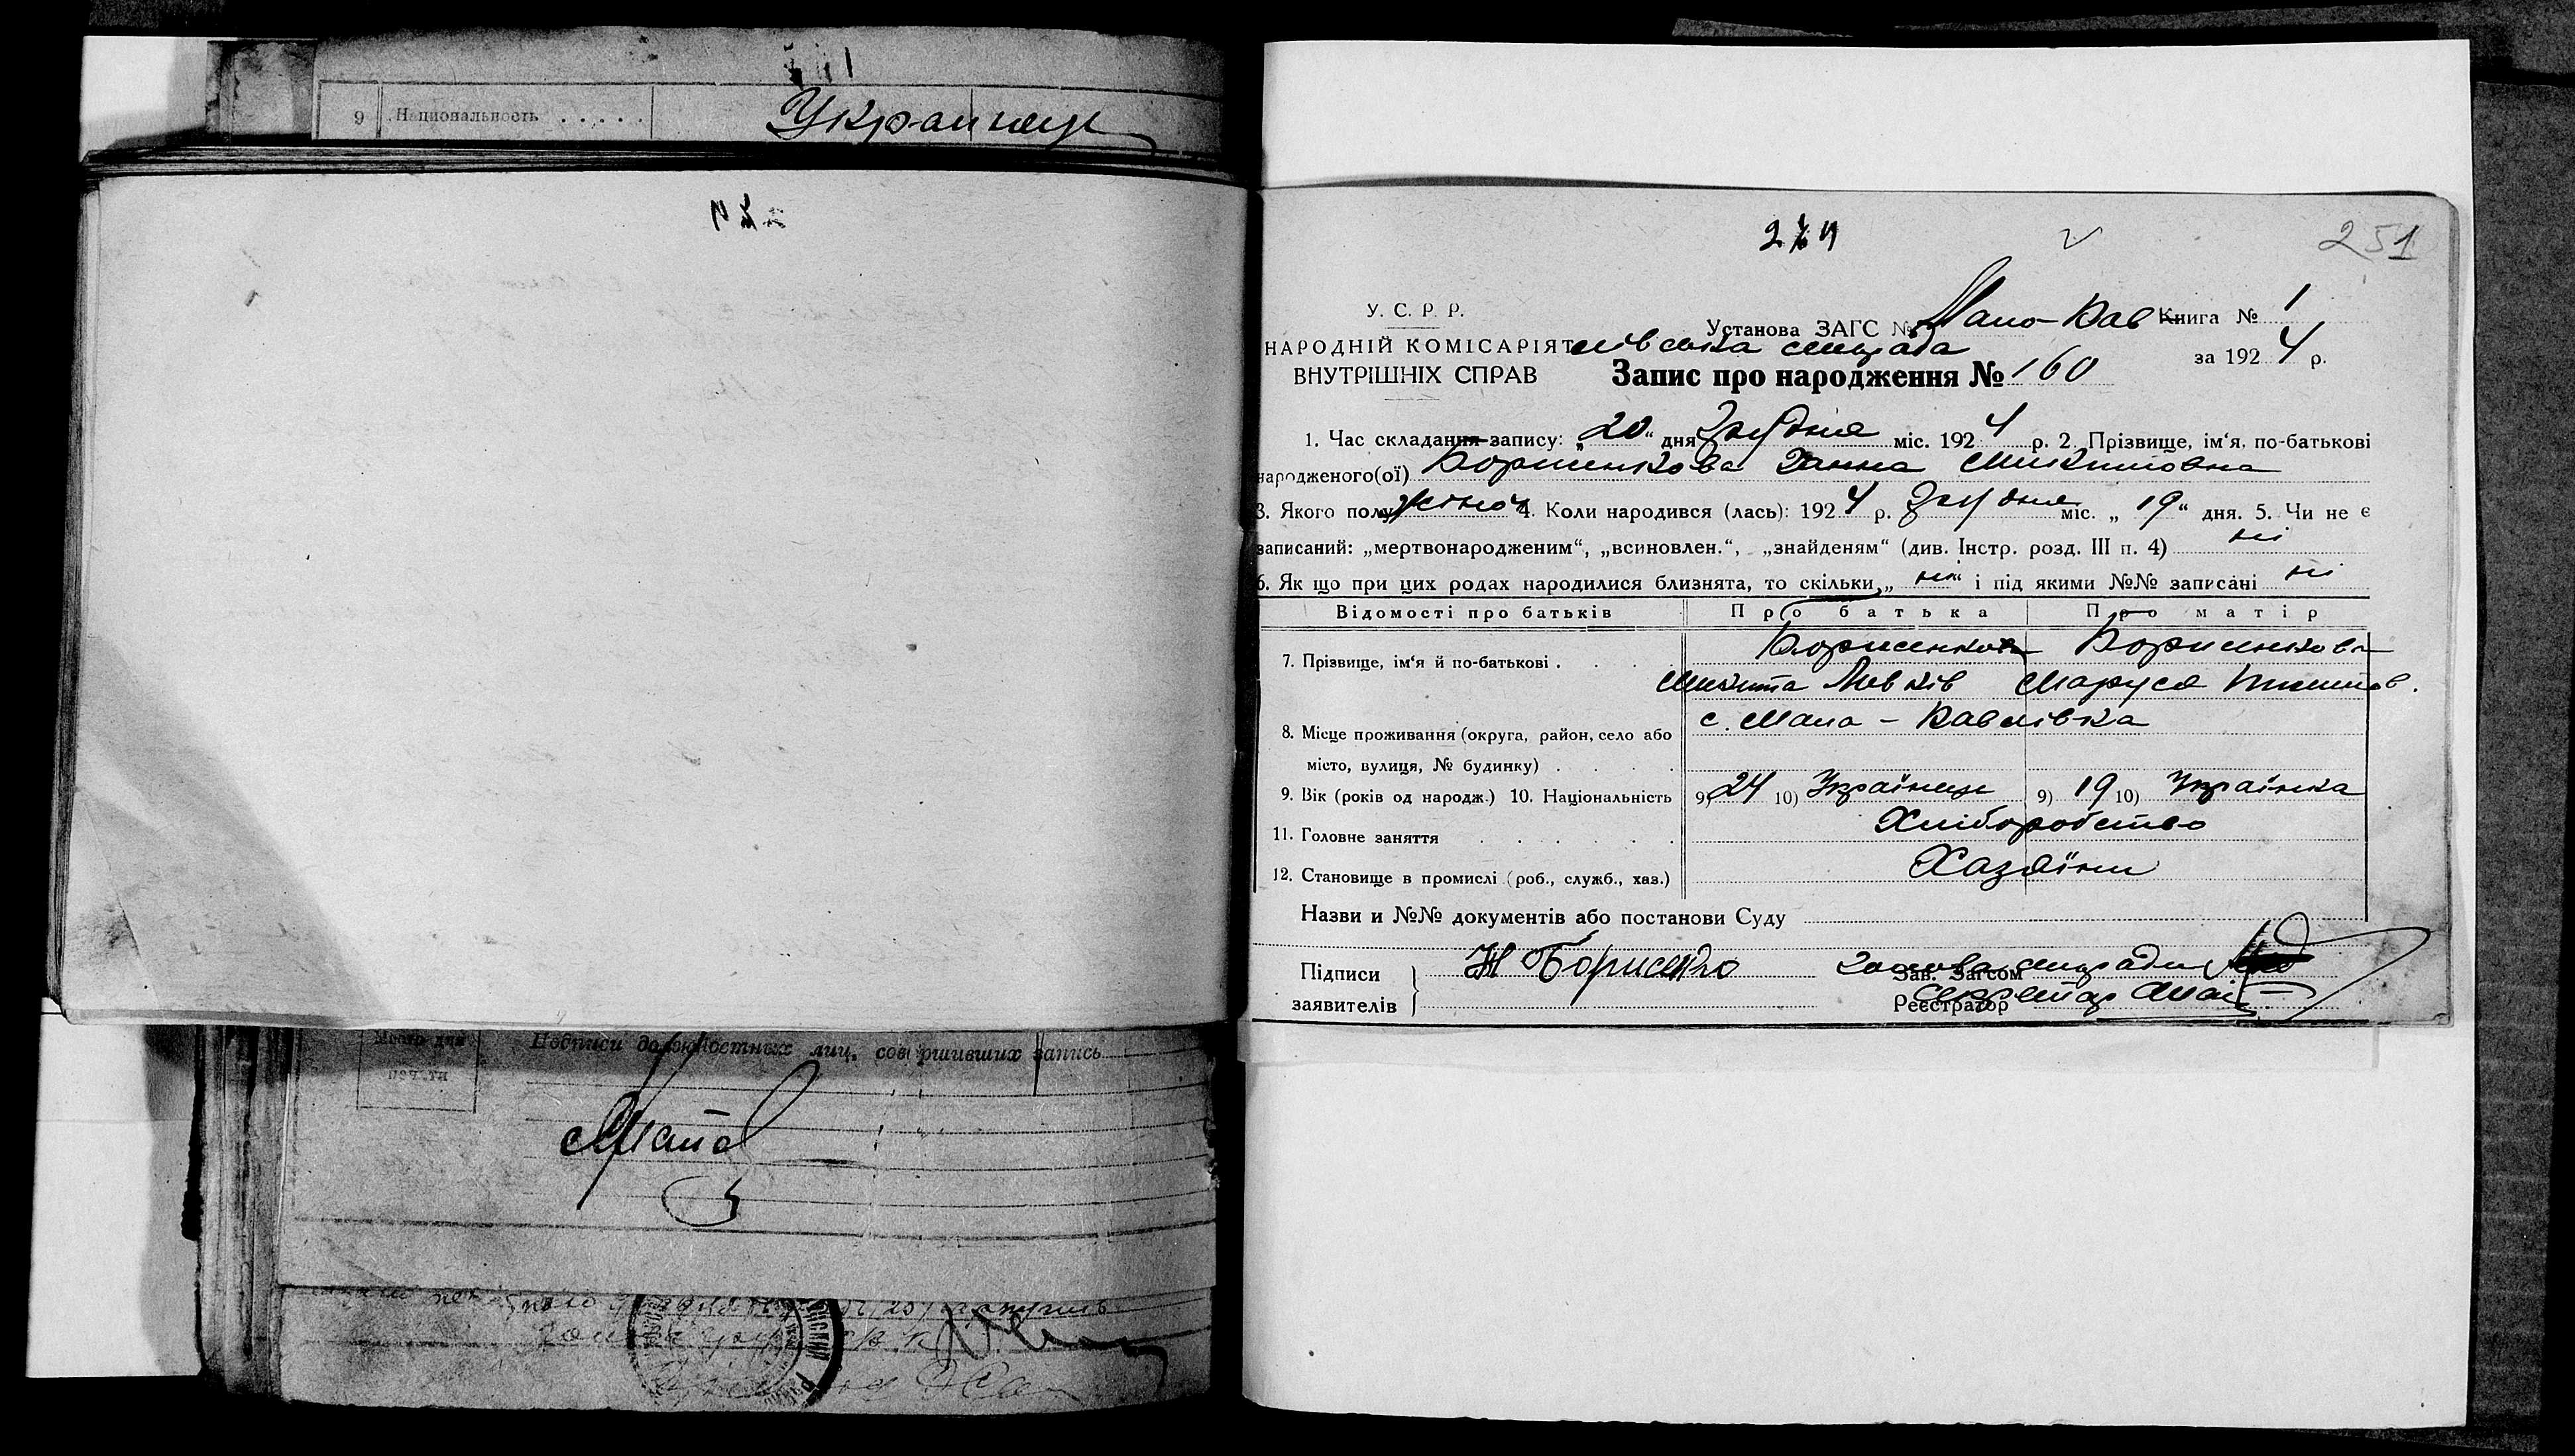 9 Национальность . . . . . Украинец
251
У. С. Р. Р.
Установа ЗАГС № Мало-Пав Книга № 1
НАРОДНІЙ КОМІСАРІЯТ лівська сільрада за 1924 р.
ВНУТРІШНІХ СПРАВ Запис про народження № 160
1. Час складання запису: „20“ дня Грудня міс. 1924 р. 2. Прізвище, ім‘я, по-батькові
народженого(ої) Борисенкова Ганна Микитовна
3. Якого полу жіноч 4. Коли народився (лась): 1924 р. Грудня міс. „19“ дня. 5. Чи не є
записаний: „мертвонародженим“, „всиновлен.“, „знайденям“ (див. Інстр. розд. III п. 4) ні
6. Як що при цих родах народилися близнята, то скільки „ні“ і під якими №№ записані ні
Відомості про батьків Про батька Про матір
7. Прізвище, ім‘я й по-батькові . Борисенков Борисенкова
Микита Левків Маруся
8. Місце проживання (округа, район, село або с. Мало-Павлівка
місто, вулиця, № будинку) .
9. Вік (років од народж.) 10. Національність 9) 24 10) Українець 9) 19 10) Українка
11. Головне заняття Хліборобство
12. Становище в промислі (роб., служб., хаз.) Хазяїни
Назви и №№ документів або постанови Суду
Підписи Н Борисенко Зав. Загсом Голова сільради
заявителів Реєстратор Секретар
Место для печати
Подписи должностных лиц, совершивших запись